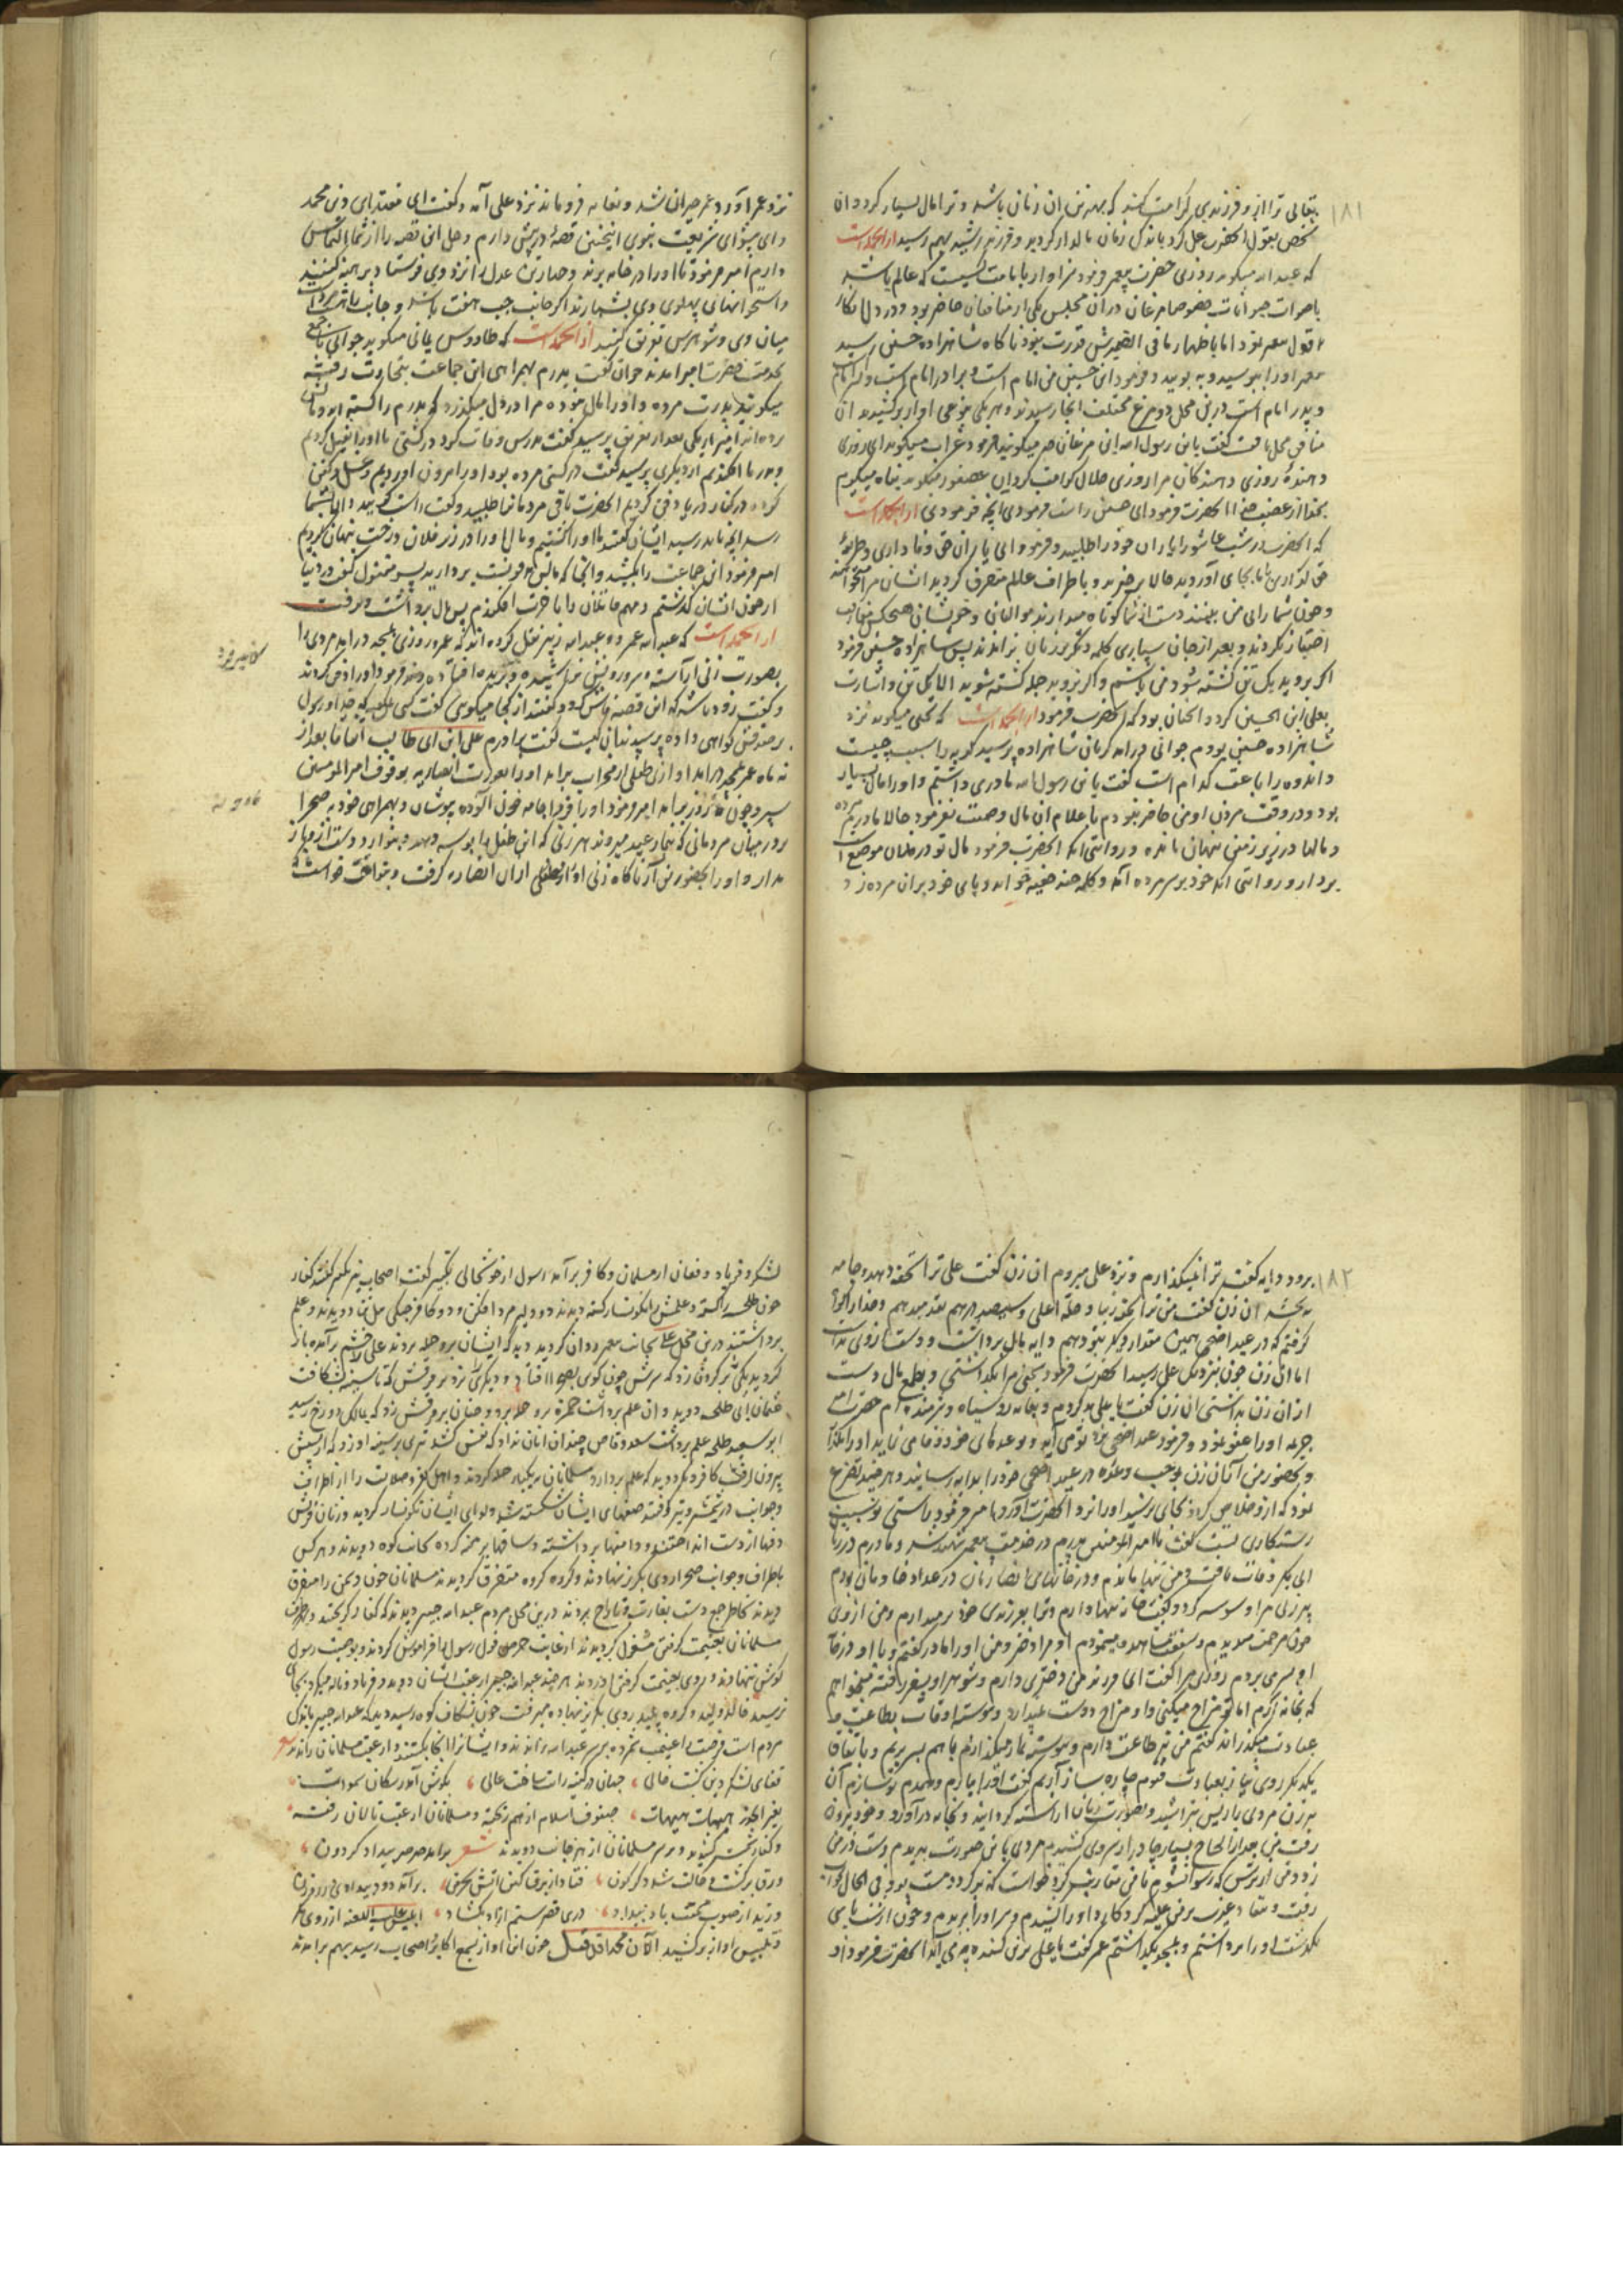 ۱۸۱
تعالی ترا از و فرزندی کرامت کند که بهترین ان زنان باشد و ترا مال بسیار کردد ان
شخص بقول انحضرت عمل کرد باندک زمان مالدار کردید و فرزند رشید بهم رسید از انجمله است
که عبد الله میکوید روزی حضرت پیغمبر فرمود سزاوار بامامت کسیست که عالم باشد
باصوات حیوانات خصوصا مرغان دران مجلس یکی از منافقان حاضر بود و در دل انکار
قول پیغمبر نمود اما باظهار مافی الضمیرش قدرت نبود ناکاه شاهزاده حسین رسید
پیغمبر او را ببوسید و ببویید و فرمود این حسین من امام است و برادر امام است و
و پدر امام است درین محل دو مرغ مختلف انجا رسیدند و هر یکی بنوعی اواز برکشیدند ان
منافق مجال یافت گفت یابن رسول الله این مرغان چه میکویند فرمود غراب میکوید ای روزی
دهندهٔ روزی دهندکان مرا روزی حلال کرامت کردان عصفور میکوید پناه میکیرم
بخدا از غضب خدا انحضرت فرمود ای حسین راست فرمودی انچه فرمودی از انجمله است
که انحضرت در شب عاشورا یاران خود را طلبید و فرمود ای یاران حق وفاداری و طریقهٔ
حق کذاری بجای آوردید حالا برخیزید و باطراف عالم متفرق کردید ایشان مرا میخواهند
و چون شما را بی من بینند دست از شما کوتاه میدارند موالیان و خویشان هیچکس مفارقت
اختیار نکردند و بعد از جان سپاری کلمه دیگر بر زبان نراندند پس شاهزاده حسین فرمود
اکر بروید یک تن کشته شود من باشم و اکر نروید جمله کشته شوید الا یک تن و اشارت
بعلی ابن الحسین کرد و انچنان بود که انحضرت فرمود از انجمله است که یحیی میکوید نزد
شاهزاده حسین بودم جوانی درامد کریان شاهزاده پرسید کریه را سبب چیست
و اندوه را باعث کدام است گفت یابن رسول الله مادری داشتم و او را مال بسیار
بود و در وقت مردن او من حاضر نبودم باعلام ان مال وصیت نفرمود حالا مادرم مرده
و مالها در زیر زمین پنهان مانده و روایتی انکه انحضرت فرمود مال تو در فلان موضع است
بردار و روایتی انکه خود بر سر مرده آمد و کلمه چند خفیه خواند و پای خود بران مرده زد
نزد عمر آورد عمر حیران شد و بغایت فروماند نزد علی آمد و گفت ای مقتدای دین محمد
و ای پیشوای شریعت نبوی اینچنین قصهٔ در پیش دارم و حل این قصه را از شما التماس
دارم امیر فرمود تا او را در خانه برند و چهار زن عدل را نزد وی فرستاد برهنه کنند
و استخوانهای پهلوی وی بشمارند اکر جانب چپ هفت باشد و جانب راست هشت
میان وی و شوهرش تفریق کنید از انجمله است که طاووس یمانی میکوید جوانی با جمع
بخدمت حضرت امیر امدند جوان گفت پدرم بهمراهی این جماعت بتجارت رفته
میکویند پدرت مرده و او را مال نبوده مرا در دل میکذرد که پدرم را کشته اند و مالش
برده اند امیر از یکی بعد از تفریق پرسید گفت پدرش وفات کرد در کشتی ما او را غسل کردیم
و بدریا افکندیم از دیگری پرسید گفت در کشتی مرده بود او را بیرون اوردیم و غسل و کفن
کرده در کنار دریا دفن کردیم انحضرت باقی مردمان را طلبید و گفت راست کویید و الا بشما
رسد انچه باید رسید ایشان گفتند ما او را کشتیم و مال او را در زیر فلان درخت پنهان کردیم
امیر فرمود این جماعت را بکشند و انجا که مالش مدفونست بردارید پسر مقتول گفت در دنیا
از خون ایشان کذشتم و مهم قاتلان را باخرت افکندم پس مال برداشت و برفت
از انجمله است که عبد الله عمر و عبد الله زبیر نقل کرده اند که عمر روزی بمسجد درامد مردی را
بصورت زنی آراسته و سر و ریش تراشیده و سر بریده افتاده دید فرمود او را دفن کردند
و گفت زود باشد که این قصه فاش کردد گفتند از کجا میکویی گفت کسی میکوید که خدا و رسول
بر صدقش کواهی داده پرسیدند ان کیست گفت برادرم علی ابن ابی طالب اتفاقا بعد از
نه ماه عمر بمسجد درامد اواز طفلی از محراب برامد او را بعورت انصاریه بوقوف امیر المؤمنین
سپرد چون نه روز برامد امیر فرمود او را فردا جامه خون آلوده پوشان و بهمراهی خود بصحرا
برو در میان مردمانی که بنماز عید میروند هر زنی که این طفل را بوسه دهد و بنوازد دست ازو باز
مدار و او را بحضور من آر ناکاه زنی او را طفلی ازان انصاریه کرفت و بنواخت خواست
۱۸۲
برود دایه گفت ترا نمیکذارم و نزد علی میبرم ان زن گفت علی ترا تحفه دهد و جامه
بخشد ان زن گفت من ترا تحفه زیبا و حلهٔ اعلی و سیصد درهم نقد میدهم و خدا را کواه
کرفتم که در عید اضحی همین مقدار دیگر بتو دهم دایه مال برداشت و دست از وی بداشت
اما ان زن چون نزدیک علی رسید انحضرت فرمود سخن مرا بکذاشتی و بطمع مال دست
ازان زن بداشتی ان زن گفت یا علی بد کردم و بغایت روسیاه و شرمنده ام حضرت
جرمه او را عفو نمود و فرمود عید اضحی نزد تو می آید و بوعدهای خود وفا می نماید او را
و بحضور من آر ان زن بموجب وعده در عید اضحی خود را بدایه رسانید و هر چند تضرع
نمود که ازو خلاصی کردد بجای نرسید او را نزد انحضرت آورد امیر فرمود راستی موجب
رستکاری نیست گفت یا امیر المؤمنین پدرم در خدمت پیغمبر شهید شد و مادرم در زمان
ابی بکر وفات یافت و من تنها ماندم و در خانهای انصار زنان در عداد خادمان بودم
پیرزنی مرا وسوسه کرد و گفت خانه تنها دارم و ترا بفرزندی خود برمیدارم و من ازوی
چون مرحمت میدیدم و شفقت مشاهده مینمودم او مرا دختر و من او را مادر گفتم و با او در خانه
او بسر می بردم روزی مرا گفت ای فرزند من دختری دارم و شوهر او بسفر رفته میخواهم
که بخانه آرم اما تو مزاح میکنی و او مزاح دوست نمیدارد و پیوسته اوقات بطاعت و
عبادت میکذراند گفتم من نیز طاعت دارم و پیوسته نماز میکذارم با هم بسر بریم و باتفاق
یکدیگر روی نیاز بعبادت قیوم چاره ساز آریم گفت او را بیارم و همدم تو سازم آن
پیرزن مردی را ریش تراشید و بصورت زنان اراسته کردانید و بخانه درآورد و خود بیرون
رفت من بعد از الحاح بسیار چادر از سر وی کشیدم مردی باین صورت بدیدم دست در من
زد و من از ترس که رسوا نشوم
رفت و
بکذشت او را برداشتم و بمسجد بکداشتم عمر گفت یا علی برین کننده چه می آید انحضرت فرمود او
لشکر و فریاد و فغان از مسلمان و کافر برآمد رسول از خوشحالی تکبیر گفت اصحاب نیز تکبیر گفتند کفار
چون طلحه را کشته و علمش را نگونسار کشته دیدند دو دلیر مرد افکن و دو کافر جنکی میان دویدند و علم
برداشتند درین محل علی بجانب پیغمبر روان کردید دید که ایشان برو حمله بردند علی از خشم برآمده باز
کردید یکی را بر کردن زد که سرش چون کوی بصحرا افتاد و دیگری را نیزه بر فرقش که تا سینه بشکافت
عثمان ابی طلحه دوید و ان علم برداشت حمزه برو حمله برد و چنان بر فرقش زد که بمالک دوزخ رسید
ابو سعید طلحه علم برداشت سعد وقاص چندان امان نداد که نفس کشد تیری بر سینه او زد که از پشتش
بیرون رفت کافر دیگر دوید که علم بردارد مسلمانان بیکبار حمله کردند و اهل کفر و ضلالت را از اطراف
و جوانب در شمشیر و تیر کرفتند صفهای ایشان شکسته شد و لوای ایشان نکونسار کردید و زنان قریش
دفها از دست انداختند و دامنها برداشته و ساقها برهنه کرده بجانب کوه دویدند و هر کس
باطراف و جوانب صحرا روی بکریز نهادند و کروه کروه متفرق کردیدند مسلمانان چون دشمن را متفرق
دیدند بخاطر جمع دست بغارت و تاراج بردند درین محل مردم عبد الله جبیر دیدند که کفار کریختند و
مسلمانان بغنیمت کرفتن مشغول کردیدند از غایت حرص قول رسول را فراموش کردند و بوصیت رسول
کوش ننهادند و روی بغنیمت کرفتن اوردند هر چند عبد الله جبیر از عقب ایشان دوید و فریاد و ناله میکرد بجای
نرسید خالد ولید و کروه پلید روی بکریز نهاده میرفت چون بشکاف کوه رسید دید که عبد الله جبیر باندک
مردم است فرصت را غنیمت شمرده بر سر عبد الله راندند و ایشانرا انجا بکشتند و از عقب مسلمانان راندند شعر
قفای لشکر دین کشت خالی
بغیر از هیهات هیهات صفوف اسلام از هم ریخته و مسلمانان از عقب تالان رفته
و کفار شمشیر کشیده بر سر مسلمانان از هر جانب دویدند شعر برامد صرصر بیداد کردون
ورق برکشت و حالت شد دکرکون فتاد از برق کین اتش بخرمن برآمد دود بیدادی ز روزن
وزید از صوب نکبت باد بیداد دری قصر ستم ازاد بکشاد ابلیس علیه اللعنه از روی مکر
و تلبیس اواز برکشید الا ان محمدا قد قتل چون این اواز بسمع اکابر اصحاب رسید بهم برامدند